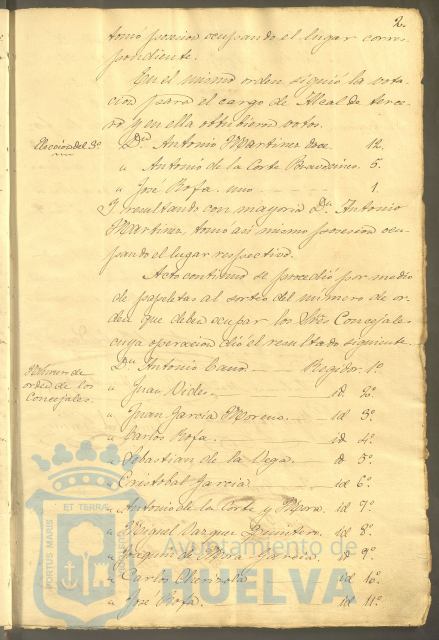 2.
tomó posesion ocupando el lugar corres-
pondiente.
En el mismo orden siguió la vota-
cion para el cargo de Alcalde terce-
ro y en ella obtubieron votos.
Eleccion del 3º
Dn. Antonio Martinez doce 12.
" Antonio de la Corte cinco. 5.
" José Rofa. uno 1.
Y resultando con mayoria Dn. Antonio
Martinez, tomó asi mismo posesion ocu-
pando el lugar respectivo.
Acto continuo se procedió por medio
de papeletas al sorteo del número de or-
den que deben ocupar los Sres. Concejales
cuya operacion dió el resultado siguiente.
Número de
orden de los
Concejales.
Dn. Antonio Cano Regidor 1º
" Juan id 2º
" Juan Garcia Moreno id 3º
" Carlos Rofa. id 4º
" Sebastian de la Vega. id 5º
" Cristobal Garcia id 6º
" Antonio de la Corte y Mora. id 7º
" Miguel Vazquez Quintero. id 8º
" de Mora Garcia. id 9º
" Carlos id 10º
" José Rofa. id 11º
PORTUS MARIS ET TERRAE CUSTODIA
Ayuntamiento de
HUELVA